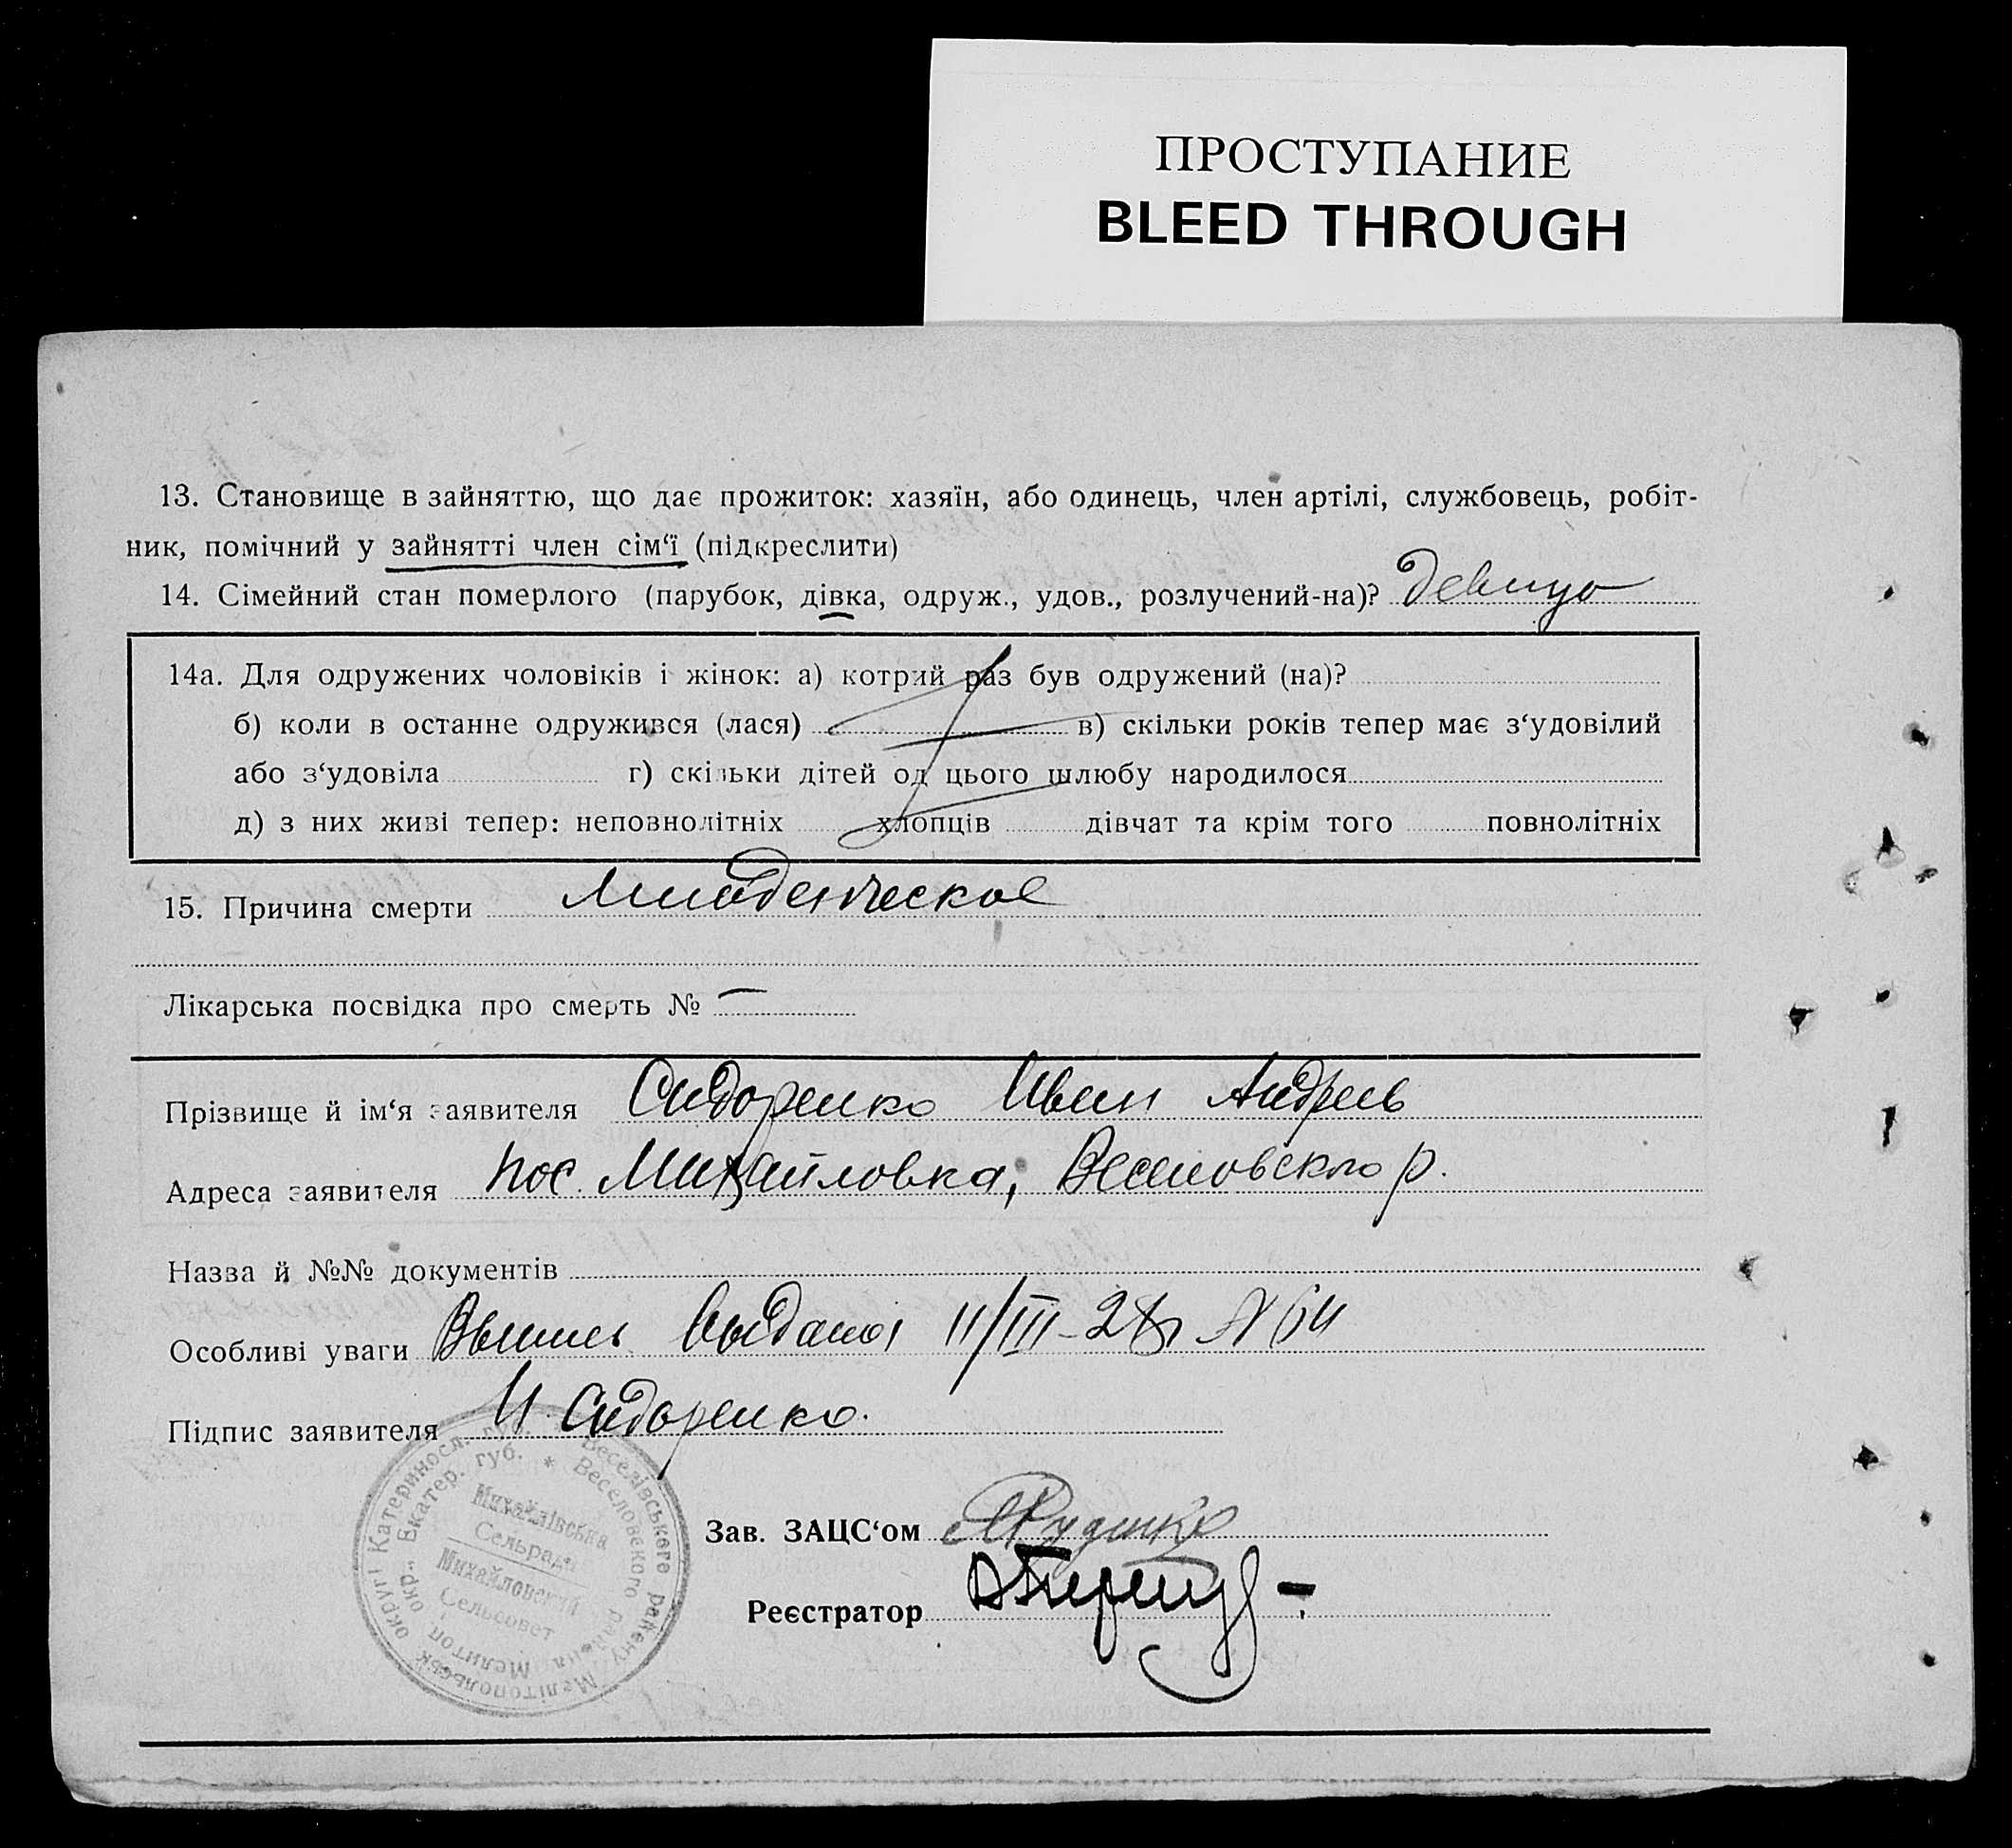 ПРОСТУПАНИЕ
BLEED THROUGH
13. Становище в зайняттю, що дає прожиток: хазяїн, або одинець, член артілі, службовець, робіт-
ник, помічний у зайнятті член сім‘ї (підкреслити)
14. Сімейний стан померлого (парубок, дівка, одруж., удов., розлучений-на)? девица
14а. Для одружених чоловіків і жінок: а) котрий раз був одружений (на)?
б) коли в останне одружився (лася) в) скільки років тепер має з‘удовілий
або з‘удовіла г) скільки дітей од цього шлюбу народилося
д) з них живі тепер: неповнолітніх хлопців дівчат та крім того повнолітніх
15. Причина смерти Младенческое
Лікарська посвідка про смерть № —
Прізвище й ім‘я заявителя Сидоренко Иван Андреев
Адреса заявителя пос. Михайловка, Веселовского р.
Назва й №№ документів
Особливі уваги 11/III-28 № 64
Підпис заявителя И. Сидоренко.
Катериносл. губ. * Веселівського району Мелітопольськ округи
Екатер. губ. * Веселовского района Мелитоп. окр.
Михайлівська
Сельрада
Михайловский
Сельсовет
Зав. ЗАЦС‘ом Руденко
Реєстратор